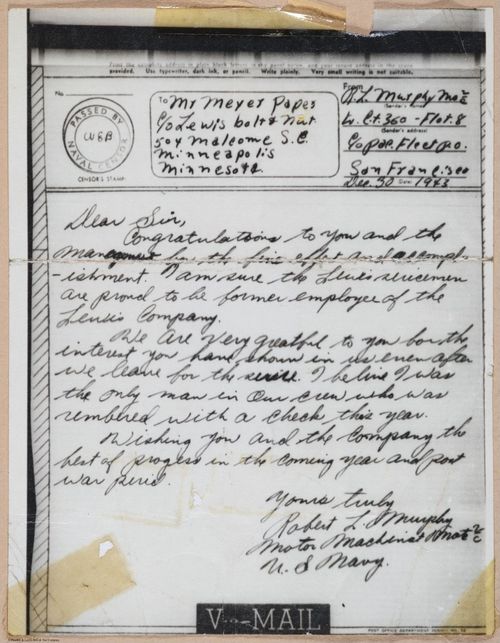 Print the complete address in plain block letters in the panel below, and your return address in the space
provided. Use typewriter, dark ink, or pencil. Write plainly. Very small writing is not suitable.
No.
PASSED BY
NAVAL CENSOR
CENSOR'S STAMP
To Mr Meyer Papes
C/o Lewis bolt & Nut
504 Malcome S.E.
Minneapolis
Minnesota.
From
R.L. Murphy MoM
(Sender's name)
L. C.t. 360 - Flot. 8
(Sender's address)
C/o Pac. Fleet po.
San Francisco
Dec. 30 Date 1943
Dear Sir,
Congratulations to you and the
management for the fine effort and accompl-
-ishment. I am sure the Lewis servicemen
are proud to be former employee of the
Lewis Company.
We are very greatful to you for the
interest you have shown in us even after
we leave for the service. I belive I was
the only man in our crew who was
rembered with a check this year.
Wishing you and the Company the
best of progess in the coming year and post
war perid.
Yours truly
Robert L. Murphy
Motor Machinist Mate 2/c
U. S Navy.
V···—MAIL
POST OFFICE DEPARTMENT PERMIT NO.